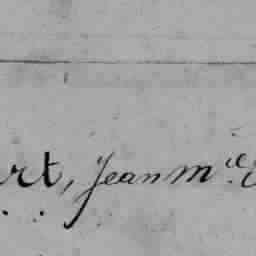 rt, Jean m.ie